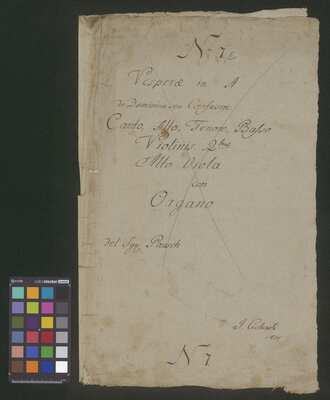 Vesperæ in A
de Dominica seu Confessore
Canto, Alto, Tenore, Basso
Violinis 2bus
Alto Viola
con
Organo
Del Sigr. Pausch
No 7